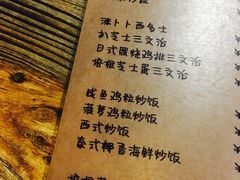 西多士
扒芝士三文治
日式照烧鸡排三文治
培根芝士蛋三文治
咸鱼鸡粒炒饭
菠萝鸡粒炒饭
西式炒饭
泰式椰香海鲜炒饭